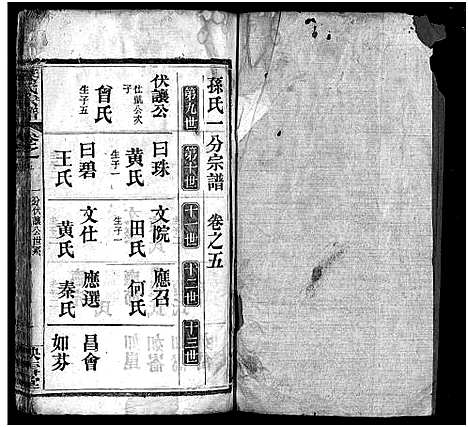 孫氏一分宗譜 卷之五
第九世 第十世 十一世 十二世 十三世
伏讓公 仕鳳公次子 曰珠 文院 應召
曾氏 生子五 黃氏 生子一 田氏 生子一 何氏
曰碧 文仕 應選 昌會
王氏 黃氏 秦氏 如芬
一分伏讓公世系